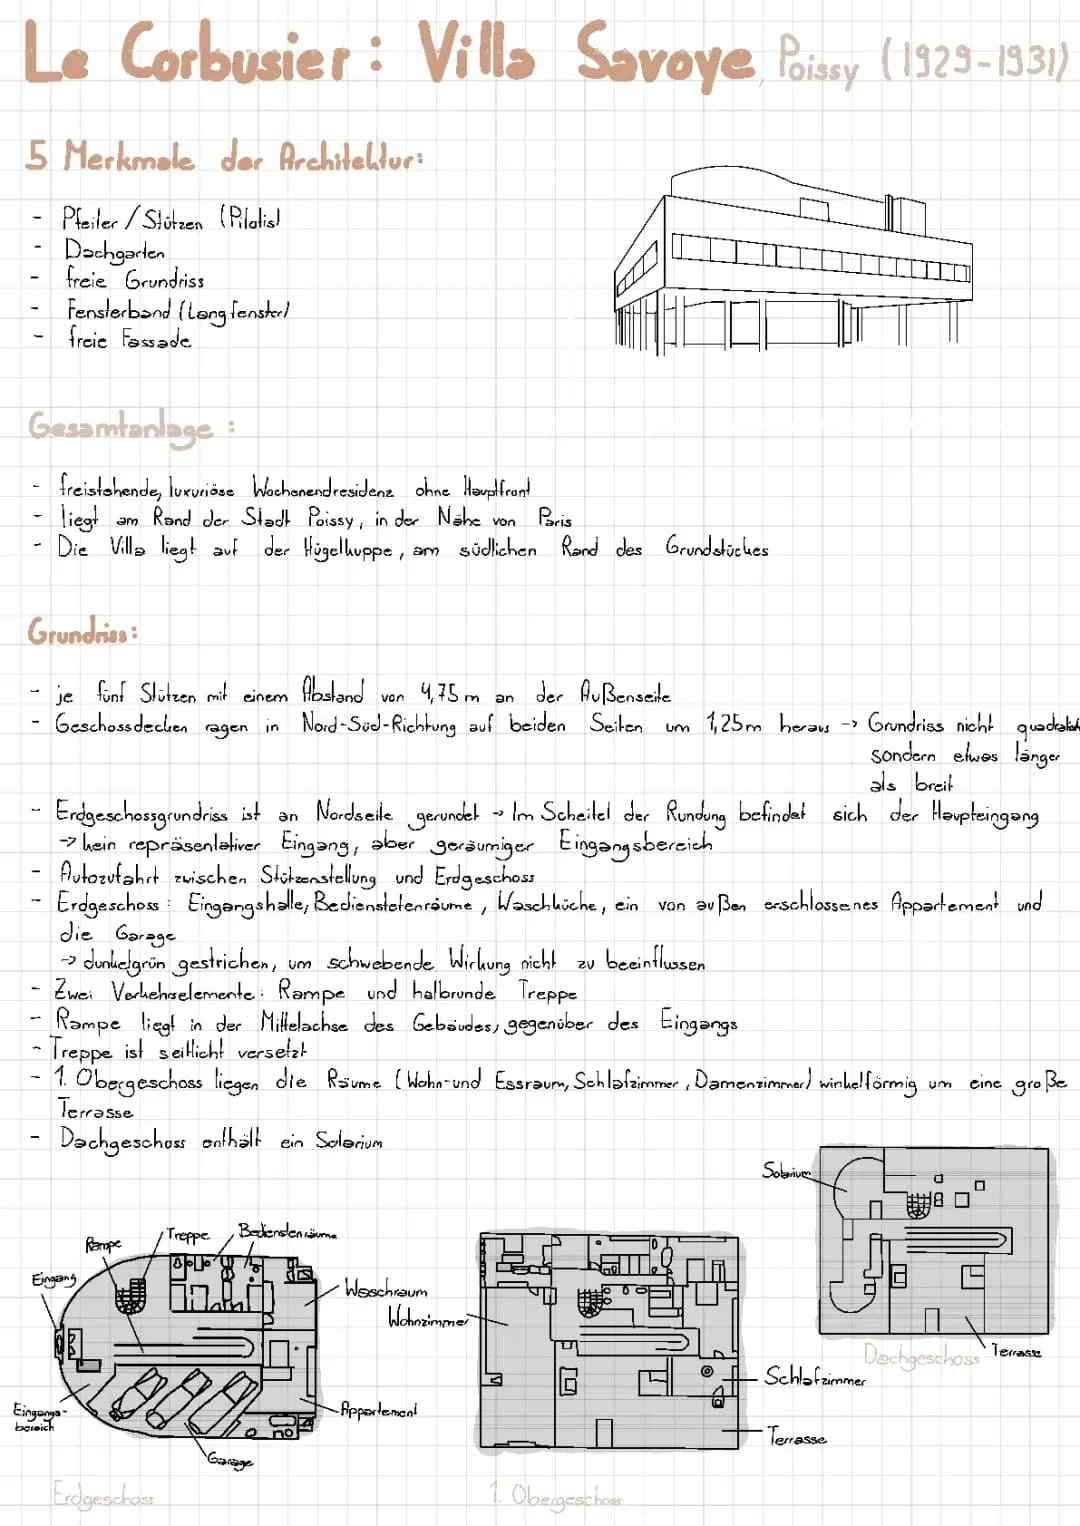 Le Corbusier: Villa Savoye, Poissy (1929-1931)
5 Merkmale der Architektur:
- Pfeiler / Stützen (Pilotis)
- Dachgarten
- freie Grundriss
- Fensterband (Langfenster)
- freie Fassade
Gesamtanlage:
- freistehende, luxuriöse Wochenendresidenz ohne Hauptfront
- liegt am Rand der Stadt Poissy, in der Nähe von Paris
- Die Villa liegt auf der Hügelkuppe, am südlichen Rand des Grundstückes
Grundriss:
- je fünf Stützen mit einem Abstand von 4,75 m an der Außenseite
- Geschossdecken ragen in Nord-Süd-Richtung auf beiden Seiten um 1,25m heraus -> Grundriss nicht quadratisch
sondern etwas länger
als breit
- Erdgeschossgrundriss ist an Nordseite gerundet -> Im Scheitel der Rundung befindet sich der Haupteingang
-> kein repräsentativer Eingang, aber geräumiger Eingangsbereich
- Autozufahrt zwischen Stützenstellung und Erdgeschoss
- Erdgeschoss: Eingangshalle, Bedienstetenräume, Waschküche, ein von außen erschlossenes Appartement und
die Garage
-> dunkelgrün gestrichen, um schwebende Wirkung nicht zu beeinflussen
- Zwei Verkehrselemente: Rampe und halbrunde Treppe
- Rampe liegt in der Mittelachse des Gebäudes, gegenüber des Eingangs
- Treppe ist seitlicht versetzt
- 1. Obergeschoss liegen die Räume (Wohn-und Essraum, Schlafzimmer, Damenzimmer) winkelförmig um eine große
Terrasse
- Dachgeschoss enthält ein Solarium
Solarium
Rampe
Treppe
Eingang
Waschraum
Wohnzimmer
Terrasse
Dachgeschoss
Schlafzimmer
Eingangs-
bereich
Appartement
Terrasse
Garage
Erdgeschoss
1. Obergeschoss